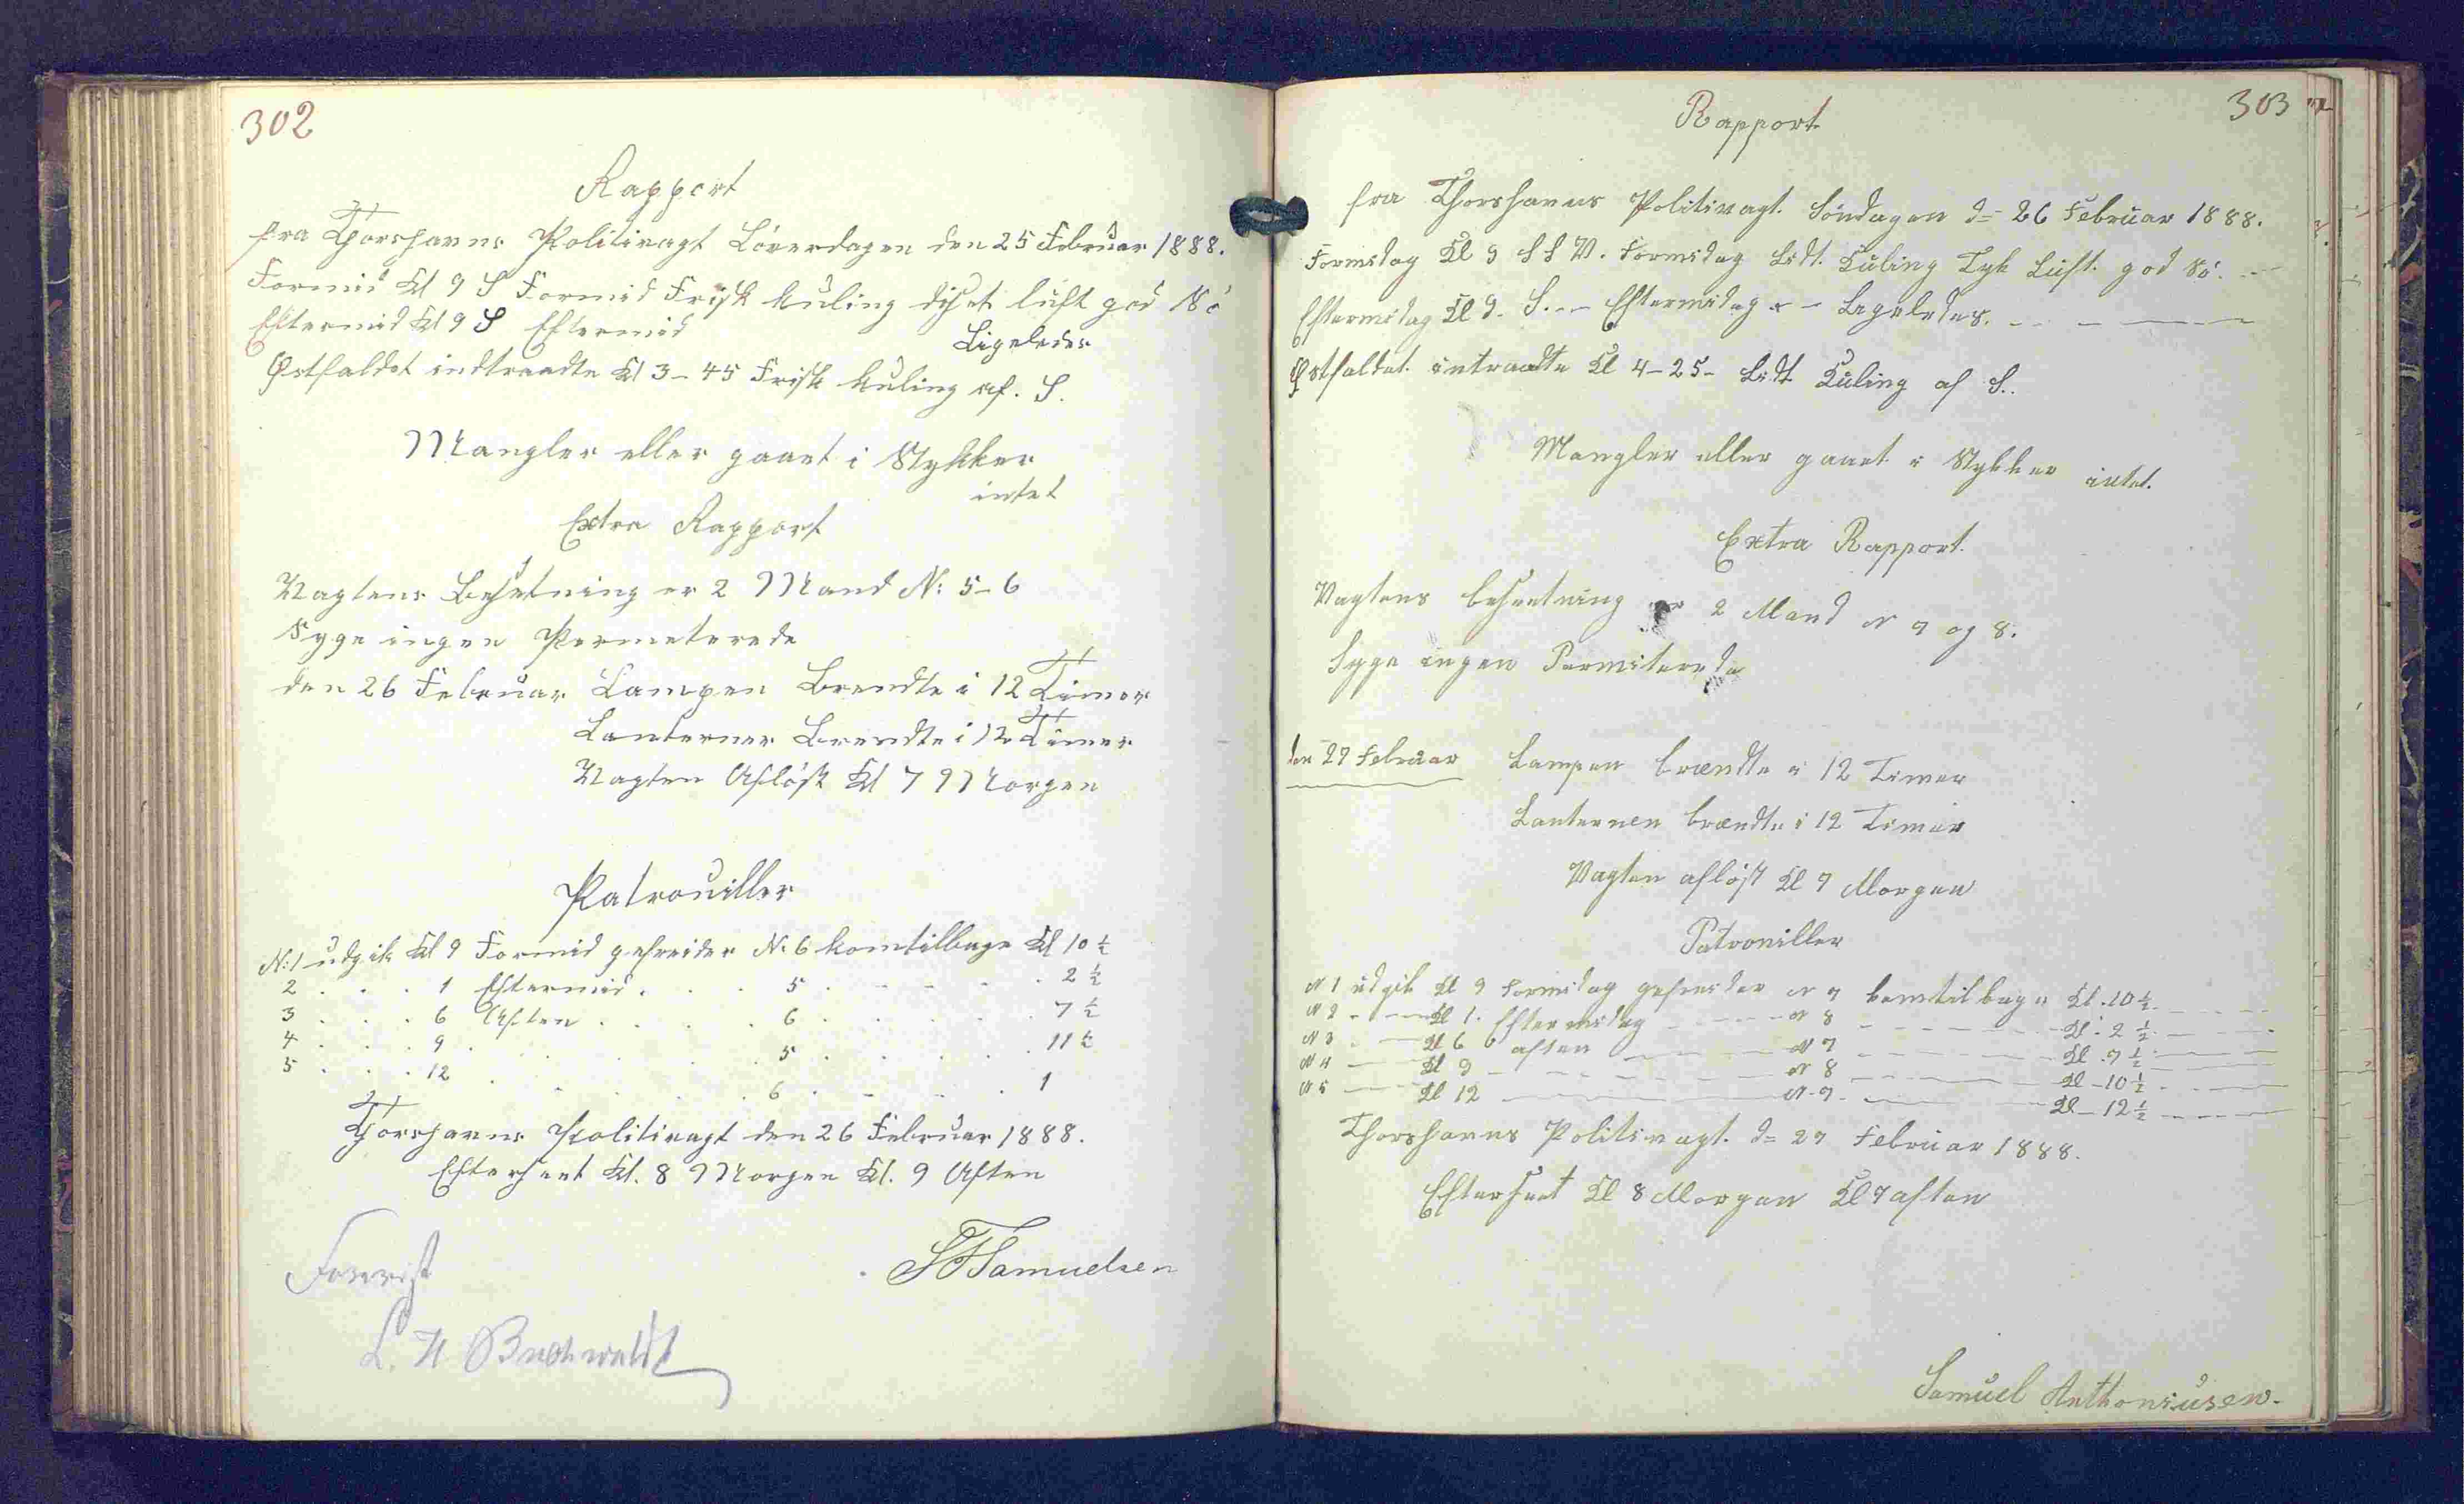 302
Rapport
fra Thorshavns Politivagt Löverdagen den 25 Februar 1888.
Formid Kl 9 S Formid Frisk kuling diset luft god Sö
Eftermid Kl 9 S Eftermid Ligeledes
Østfaldet indtraadte Kl 3-45 Frisk kuling af. S.
Mangler eller gaaet i Stykker
intet
Extra Rapport
Vagtens Besetning er 2 Mand N: 5-6
Syge ingen Permeterede
den 26 Februar Lampen Brendte i 12 Timer
Lanterner Brendte i 12 Timer
Vagten Aflöst Kl 7 Morgen
Patrouiller
N:1 udgik Kl 9 Formid gefreider N: 6 komtilbage Kl 10 ½
2 . . . 1 Eftermid . . . 5 . . . . . 2 ½
3 . . . 6 Aften . . . . 6 . . . . . 7 ½
4 . . . 9 . . . . . 5 . . . . . 11 ½
5 . . . 12 . . . . . 6 . . . . 1
Thorshavns Politivagt den 26 Februar 1888.
Efterseet Kl. 8 Morgen Kl. 9 Aften
Forevist
SFSamuelsen
L. H Buchwaldt
303
Rapport
fra Thorshavns Politivagt. Söndagen d= 26 Februar 1888.
Formidag Kl 9 S S V. Formidag Lidt. Kuling Tyk Luft. god Sö. --
Eftermidag Kl 9. S. -- Eftermidag - - Legeledes. - - - —
Østfaldet. intraadte Kl 4-25- Lidt Kuling af S..
Mangler eller gaaet i Stykker intet.
Extra Rapport.
Vagtens besætning er 2 Mand N 7 og 8.
Syge ingen Permiterede
den 27 Februar Lampen brændte i 12 Timer
Lanternen brændte i 12 Timer
Vagten aflöst Kl 7 Morgen
Patroviller
N 1 udgik Kl 9 Formidag gefreider N 7 komtilbage Kl. 10 ½
N 2 - — Kl 1. Eftermidag - - - - N 8 - - - - Kl. 2 ½
N 3 - — Kl 6 aften — - - N 7 - - - - Kl. 7 ½
N 4 — Kl 9 - - - - N 8 — - - Kl - 10 ½
N 5 — Kl 12 — — N-7 - — - Kl - 12 ½
Thorshavns Politivagt. d= 27 Februar 1888.
Efterseet Kl 8 Morgen Kl 9 aften
Samuel Anthoniusen.